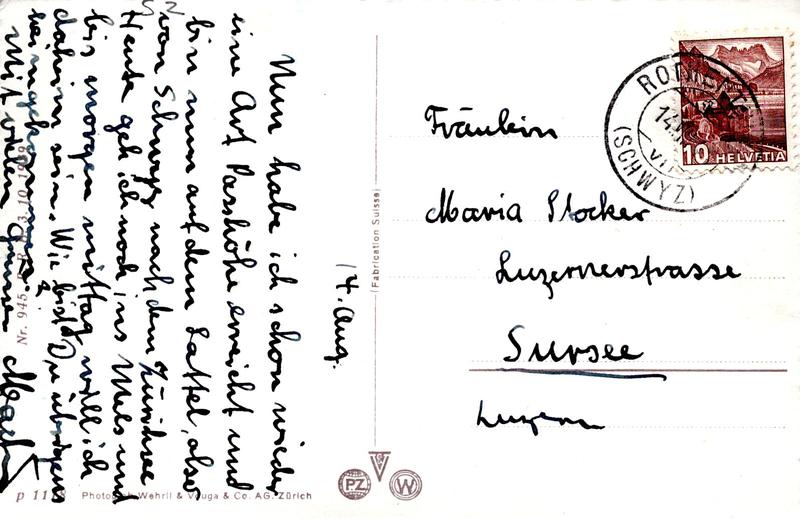 14. Aug.
Nun habe ich schon wieder
eine Art Passhöhe erreicht und
bin nun auf dem Sattel, also
von Schwyz nach dem Zürichsee
Heute geh ich noch ins Wels und
bis morgen mittag will ich
daheim sein. Wie bist Du übrigens
heimgekommen?
Mit vielen Grüssen
Fräulein
Maria Stocker
Luzernerstrasse
Sursee
Luzern
(Fabrication Suisse)
ROT
14
VII
(SCHWYZ)
10 HELVETIA
Nr. 945 3.10.
p 11 Photo Wehrli & Vouga & Co. AG. Zürich
PZ
W